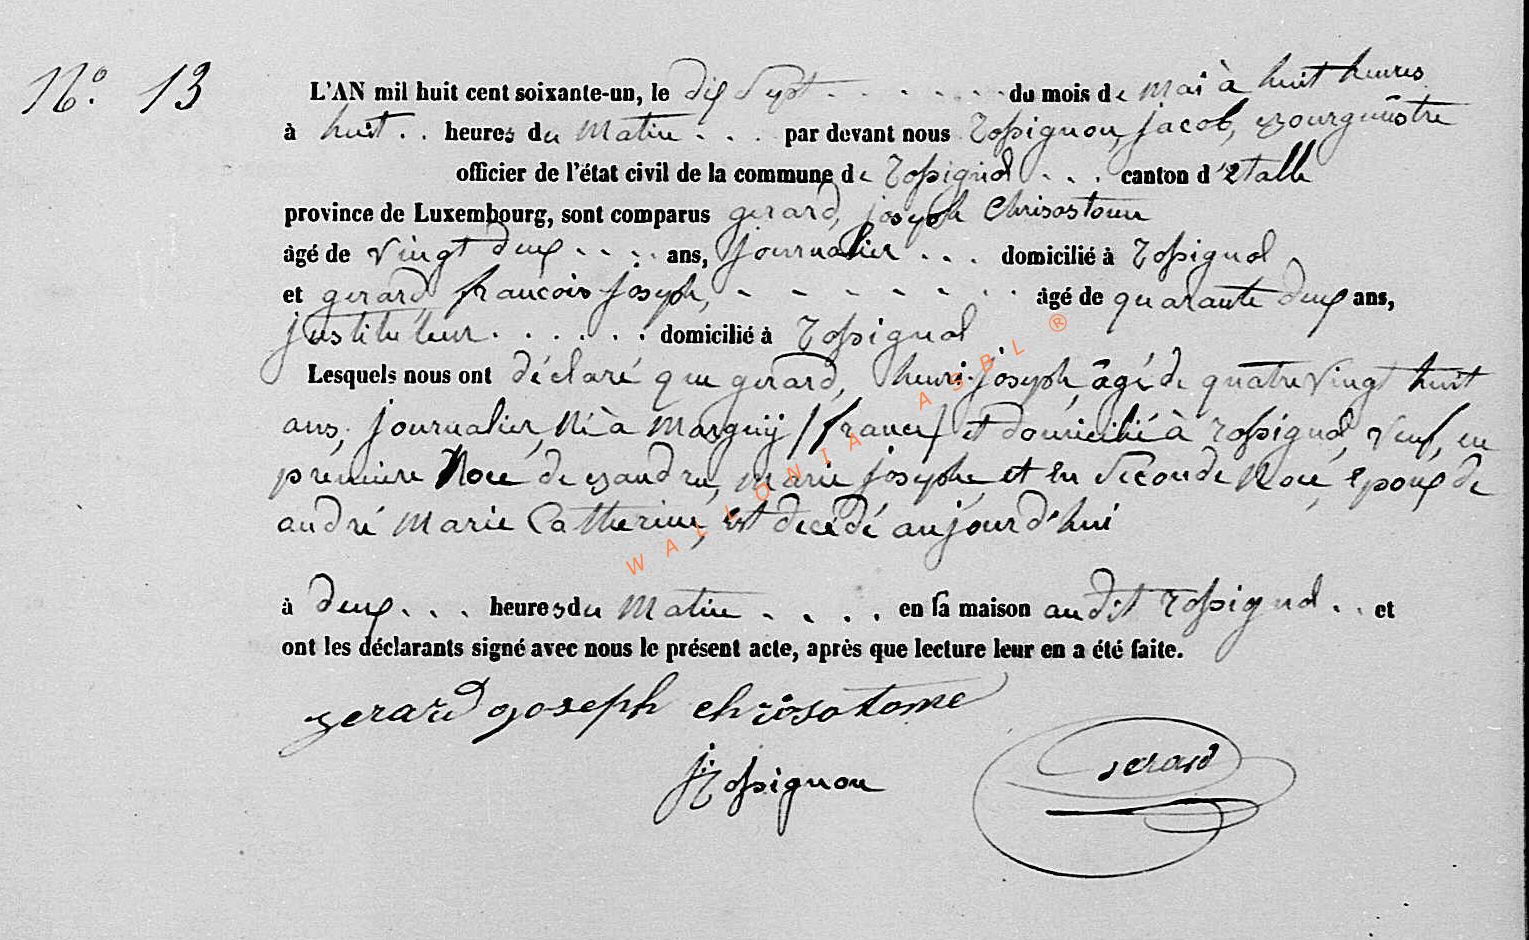 N° 13
L'AN mil huit cent soixante-un, le dix Sept du mois de mai à huit heures
à huit heures du Matin par devant nous Rossignon, jacob, Bourgmestre
officier de l'état civil de la commune de Rossignol canton d'Etalle
province de Luxembourg, sont comparus gerard, joseph Chrisostome
âgé de vingt deux ans, journalier domicilié à Rossignol
et gerard françois joseph, âgé de quarante deux ans,
justituteur domicilié à Rossignol
Lesquels nous ont déclaré que gerard, henri-joseph, âgé de quatre vingt huit
ans, journalier, Né à Marguÿ (france) et domicilié à rossignol, veuf, en
premiere Noce de marie josephe, et en Seconde Noce, époux de
andré Marie Catherine, est decédé aujourd'hui
à deux heures du Matin en sa maison audit Rossignol et
ont les déclarants signé avec nous le présent acte, après que lecture leur en a été faite.
gerard joseph chrisotome
JRossignon
Gerard
WALLONIA ASBL ®